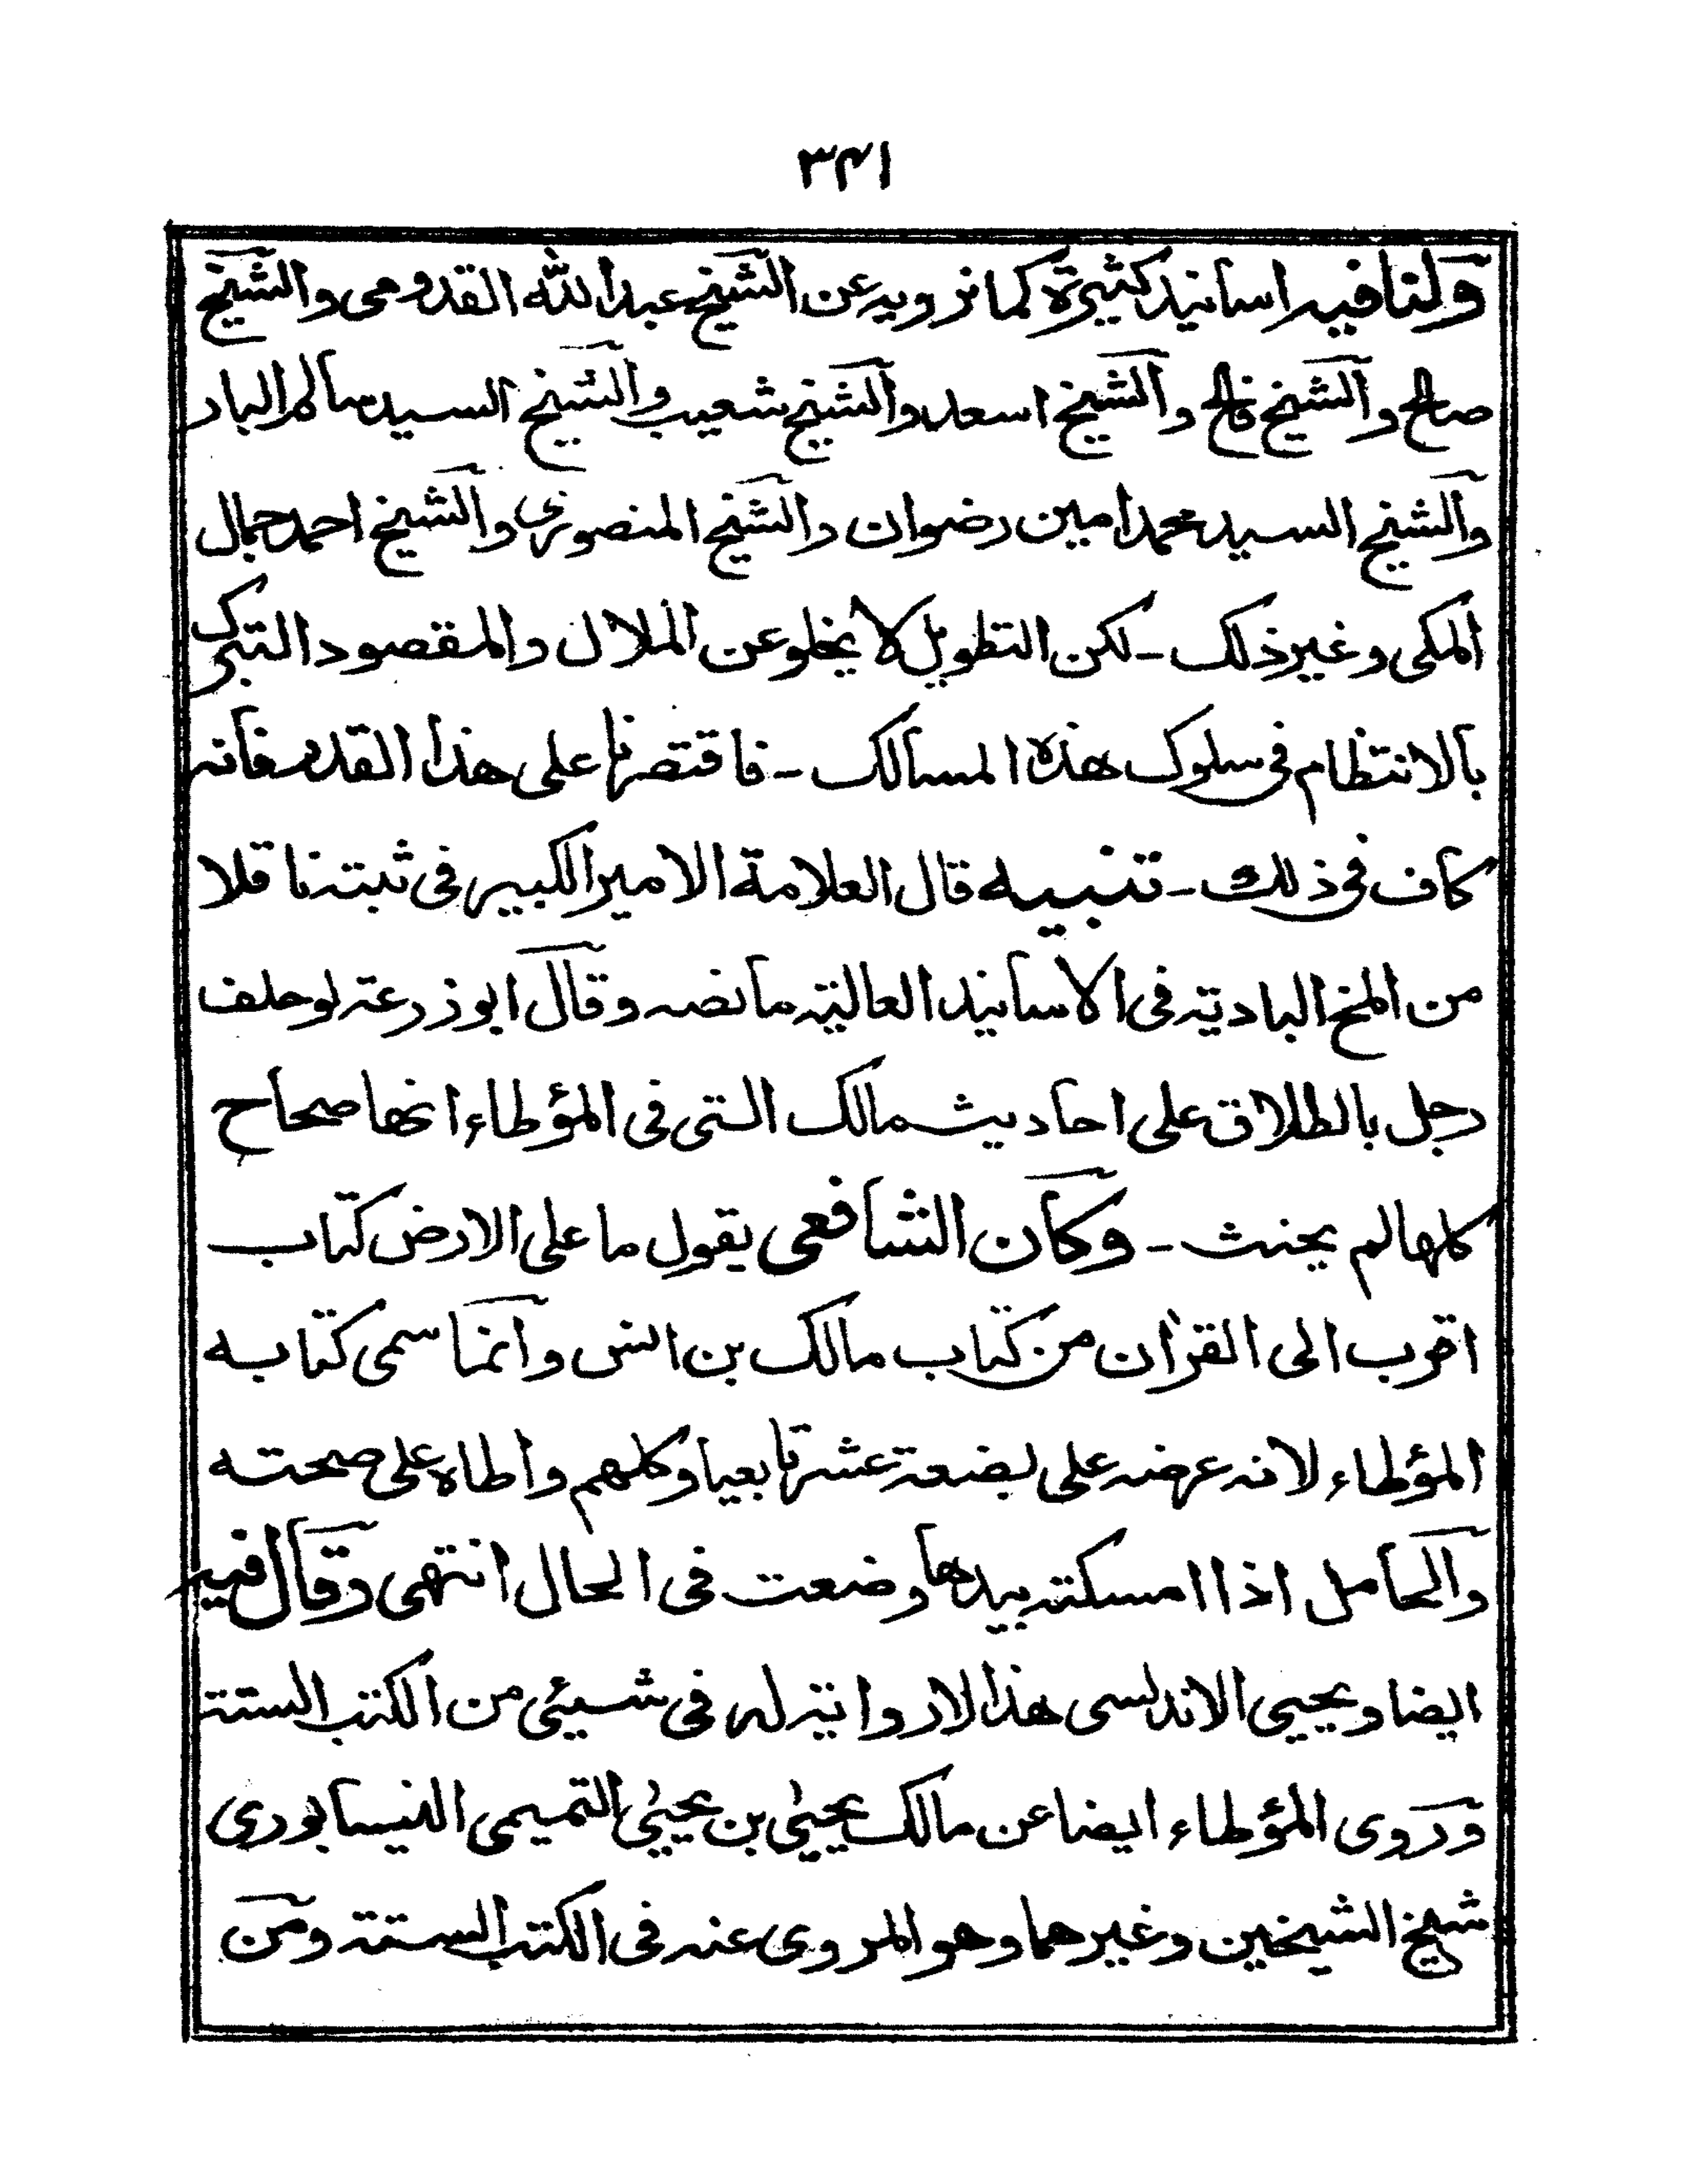 ٣٤١
ولنا فيه اسانيد كثيرة كما نرويه عن الشيخ عبد الله القدومى والشيخ
صالح والشيخ فالح والشيخ اسعد والشيخ شعيب والشيخ السيد سالم البار
والشيخ السيد محمد امين رضوان والشيخ المنصورى والشيخ احمد جمال
المكى وغير ذلك - لكن التطويل لا يخلو عن الملال والمقصود التبرك
بالانتظام فى سلوك هذه المسالك - فاقتصرنا على هذا القدر فانه
كاف فى ذلك - تنبيه قال العلامة الامير الكبير فى ثبته ناقلا
من المنح البادية فى الاسانيد العالية ما نصه وقال ابو زرعة لو حلف
رجل بالطلاق على احاديث مالك التى فى المؤطاء انها صحاح
كلها لم يحنث - وكان الشافعى يقول ما على الارض كتاب
اقرب الى القرآن من كتاب مالك بن انس وانما سمى كتابه
المؤطاء لانه عرضه على بضعة عشر تابعيا وكلهم واطاه على صحته
والحامل اذا امسكته بيدها وضعت فى الحال انتهى وقال فيه
ايضا ويحيى الاندلسى هذا لا رواية له فى شيئى من الكتب الستة
وروى المؤطاء ايضا عن مالك يحيىٰ بن يحيىٰ التميمى النيسابورى
شيخ الشيخين وغيرهما وهو المروى عنه فى الكتب الستة ومن